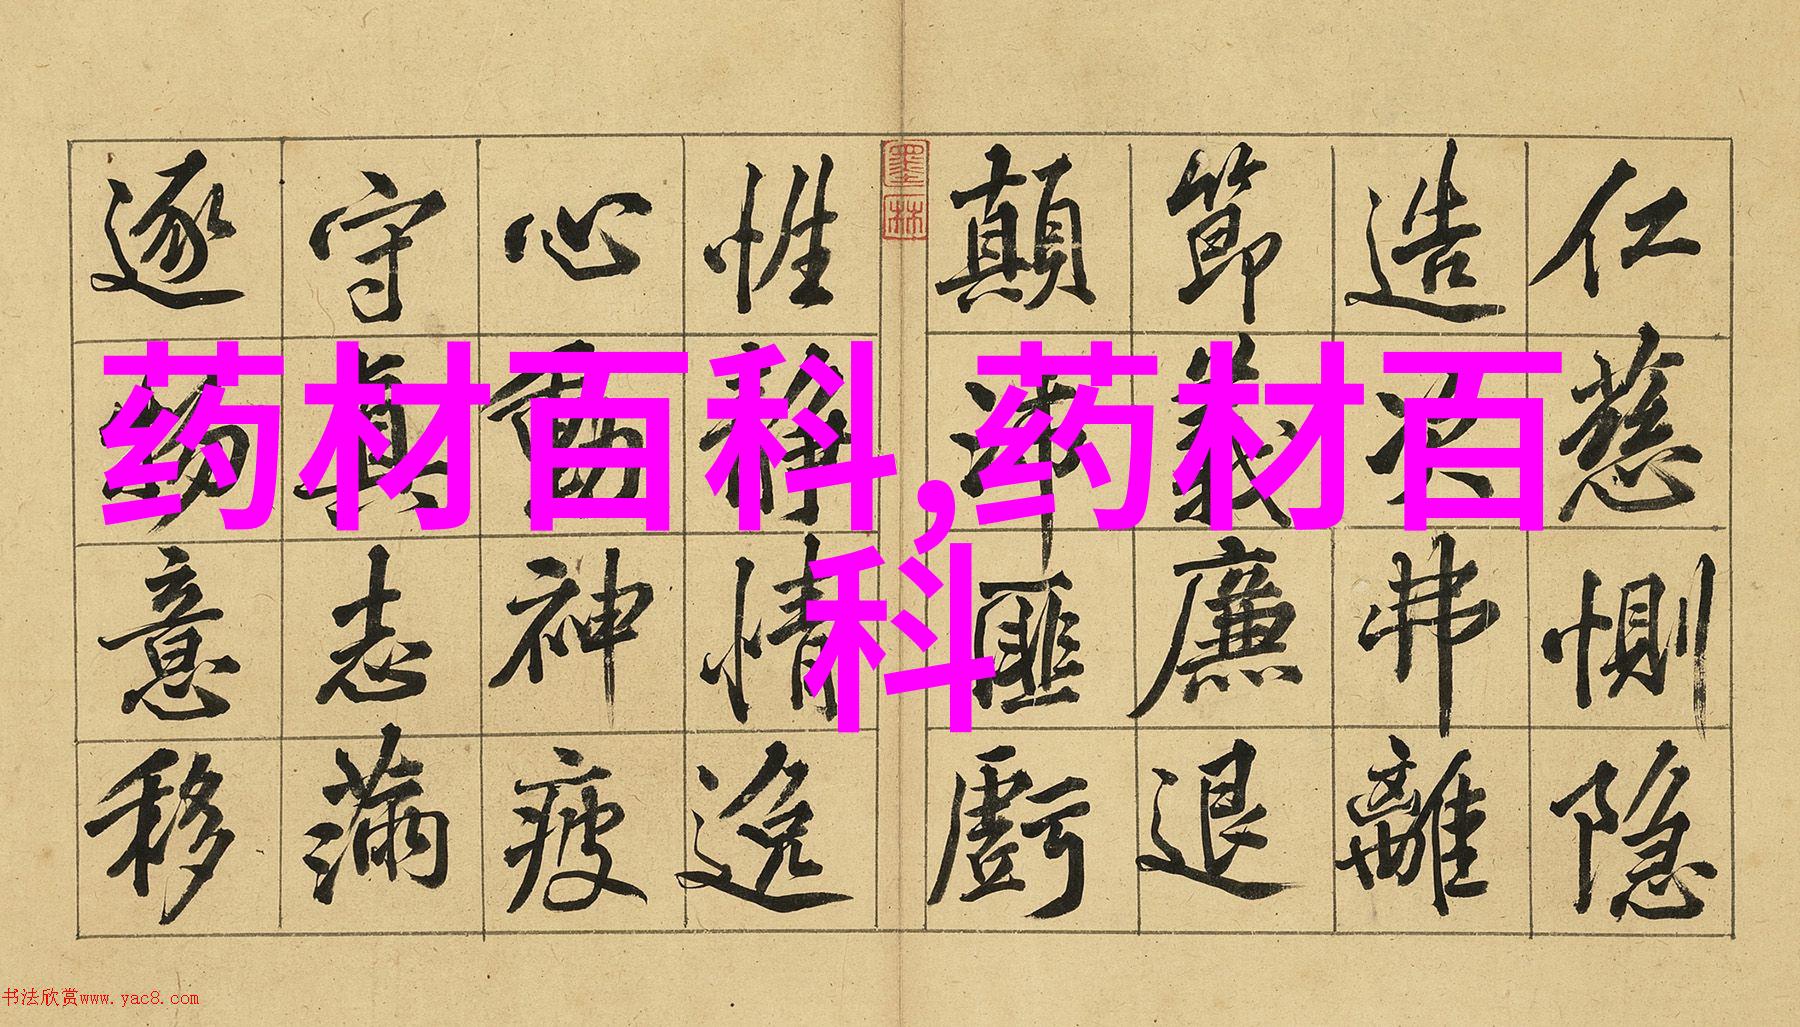 仁慈惻隐
造次弗離
節義廉退
顛沛匪虧
性静情逸
心動神疲
守真志滿
逐物意移
墨林
药材百科,药材百
科
书法欣赏www.yac8.com